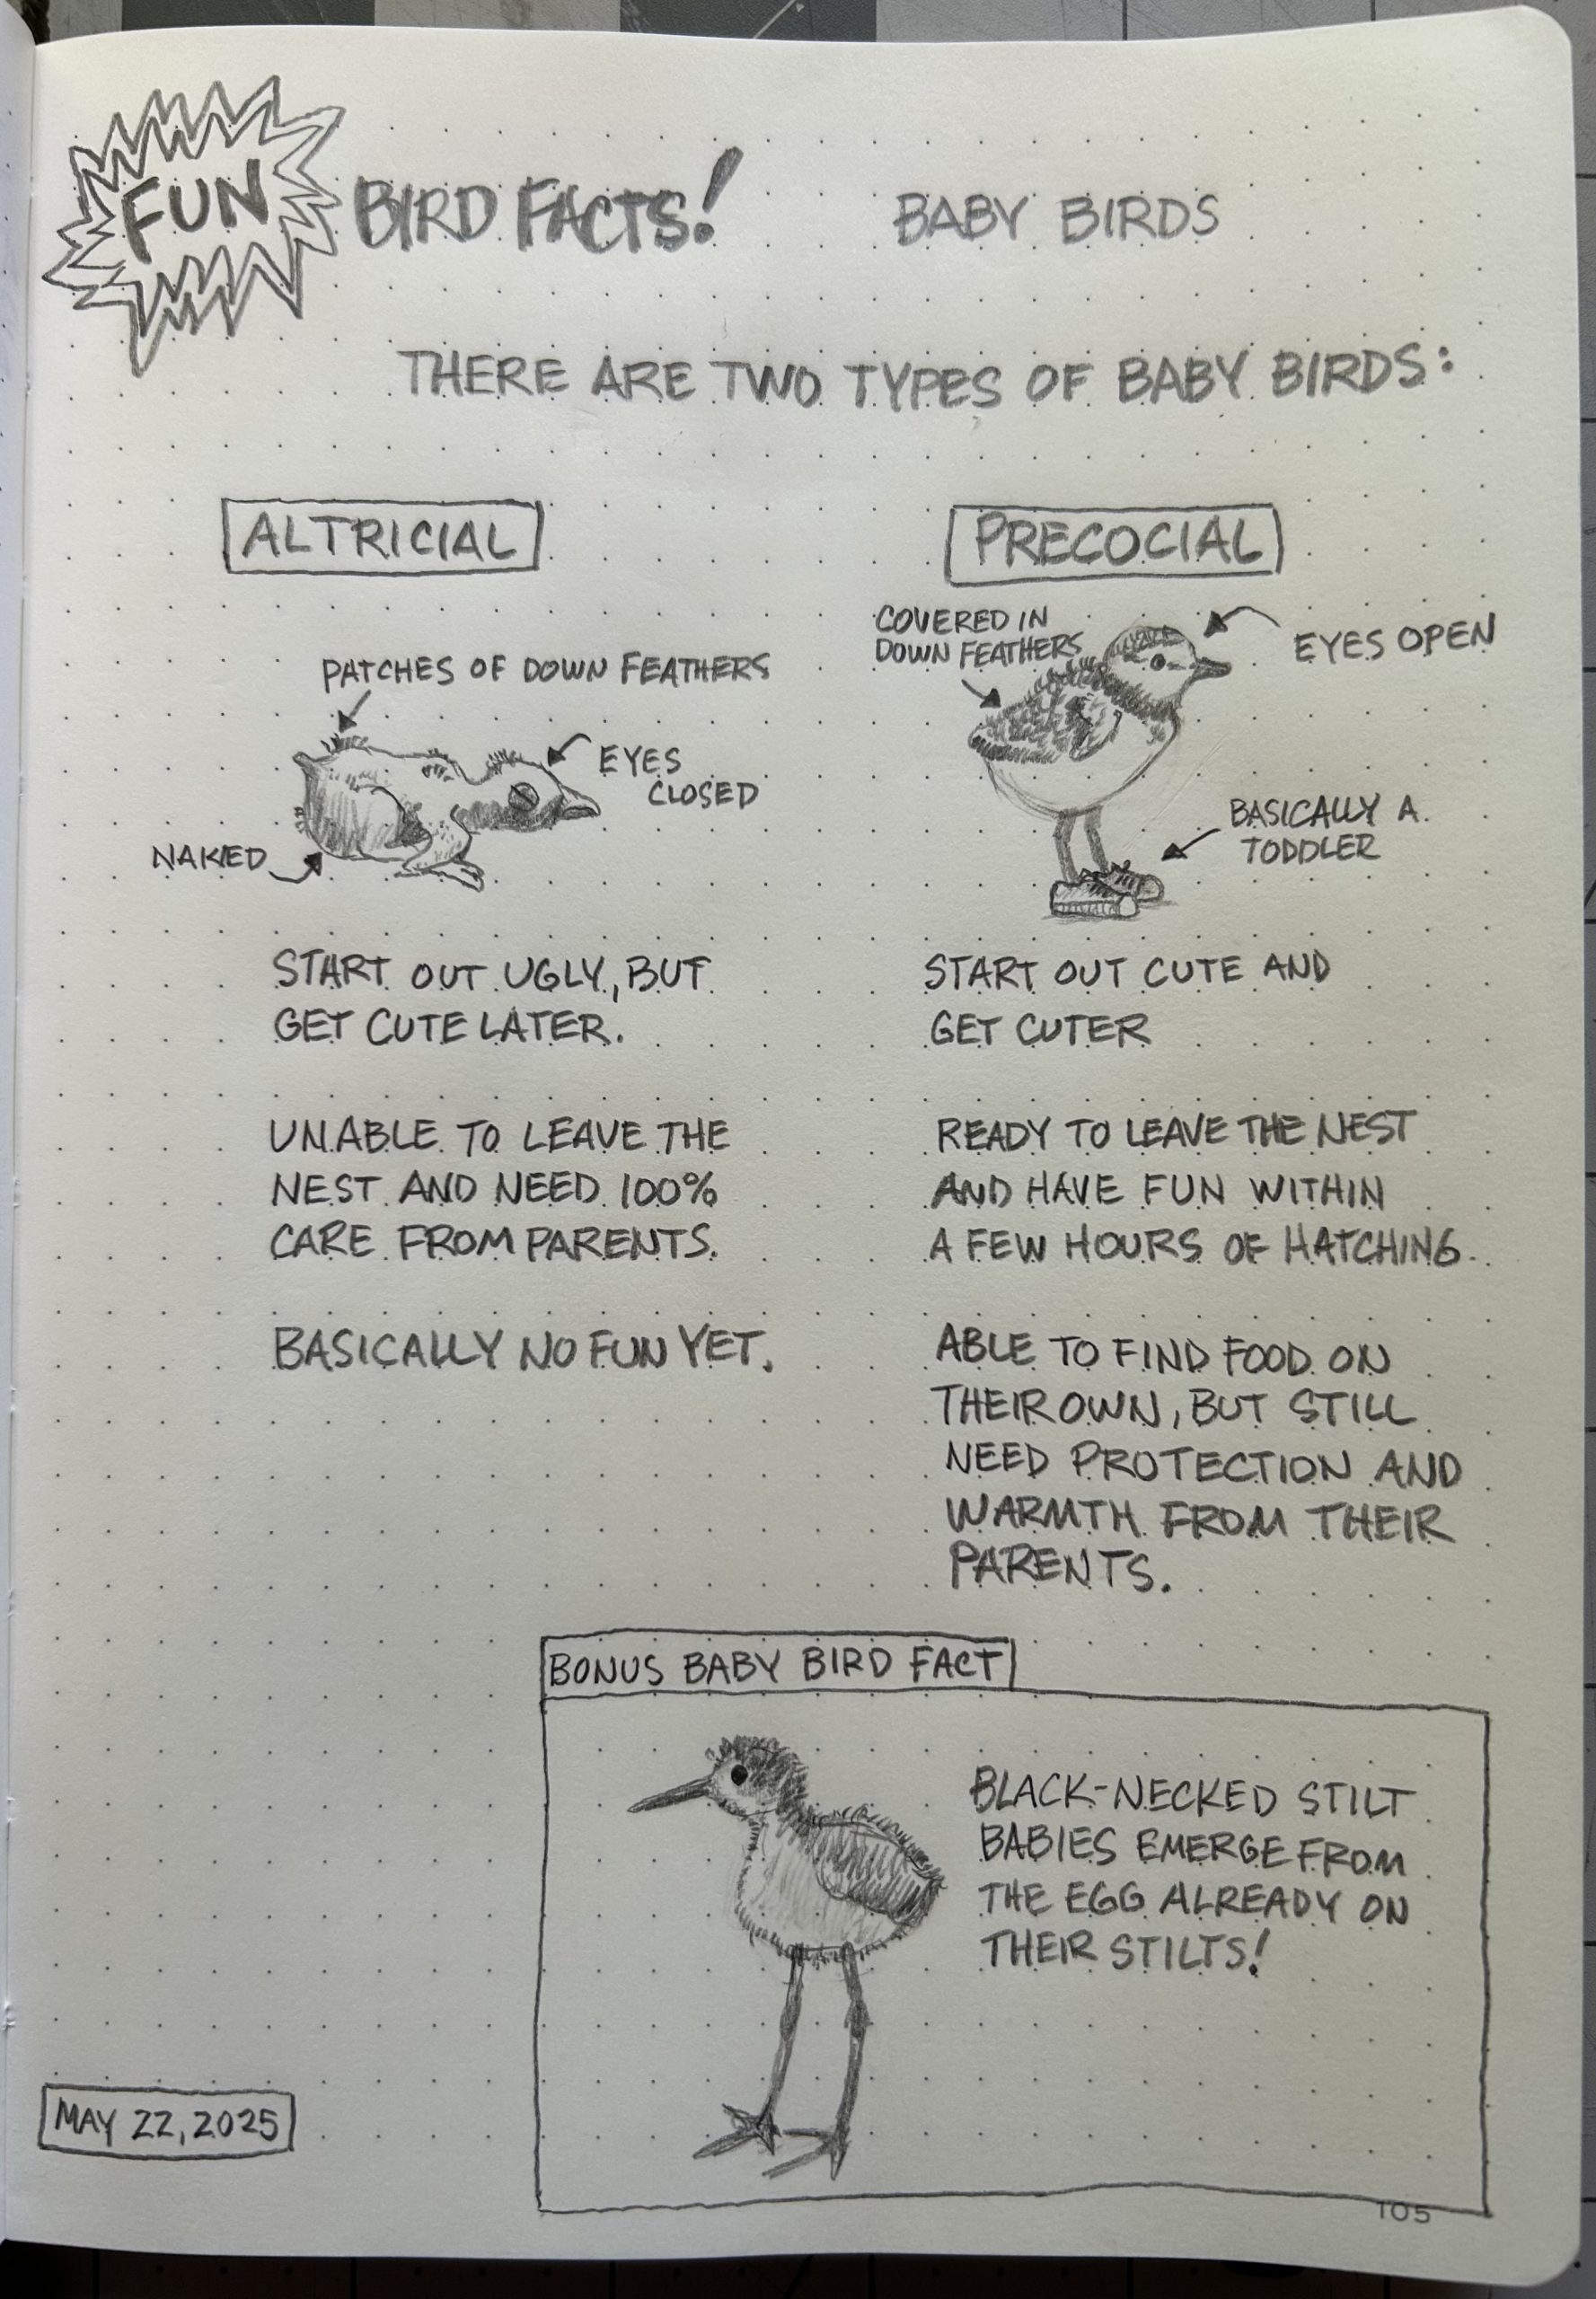 FUN BIRD FACTS!
BABY BIRDS
THERE ARE TWO TYPES OF BABY BIRDS:
ALTRICIAL
PATCHES OF DOWN FEATHERS
EYES
CLOSED
NAKED
START OUT UGLY, BUT
GET CUTE LATER.
UNABLE TO LEAVE THE
NEST AND NEED 100%
CARE FROM PARENTS.
BASICALLY NO FUN YET.
PRECOCIAL
COVERED IN
DOWN FEATHERS
EYES OPEN
BASICALLY A
TODDLER
START OUT CUTE AND
GET CUTER
READY TO LEAVE THE NEST
AND HAVE FUN WITHIN
A FEW HOURS OF HATCHING.
ABLE TO FIND FOOD ON
THEIR OWN, BUT STILL
NEED PROTECTION AND
WARMTH FROM THEIR
PARENTS.
BONUS BABY BIRD FACT
BLACK-NECKED STILT
BABIES EMERGE FROM
THE EGG ALREADY ON
THEIR STILTS!
MAY 22, 2025
105